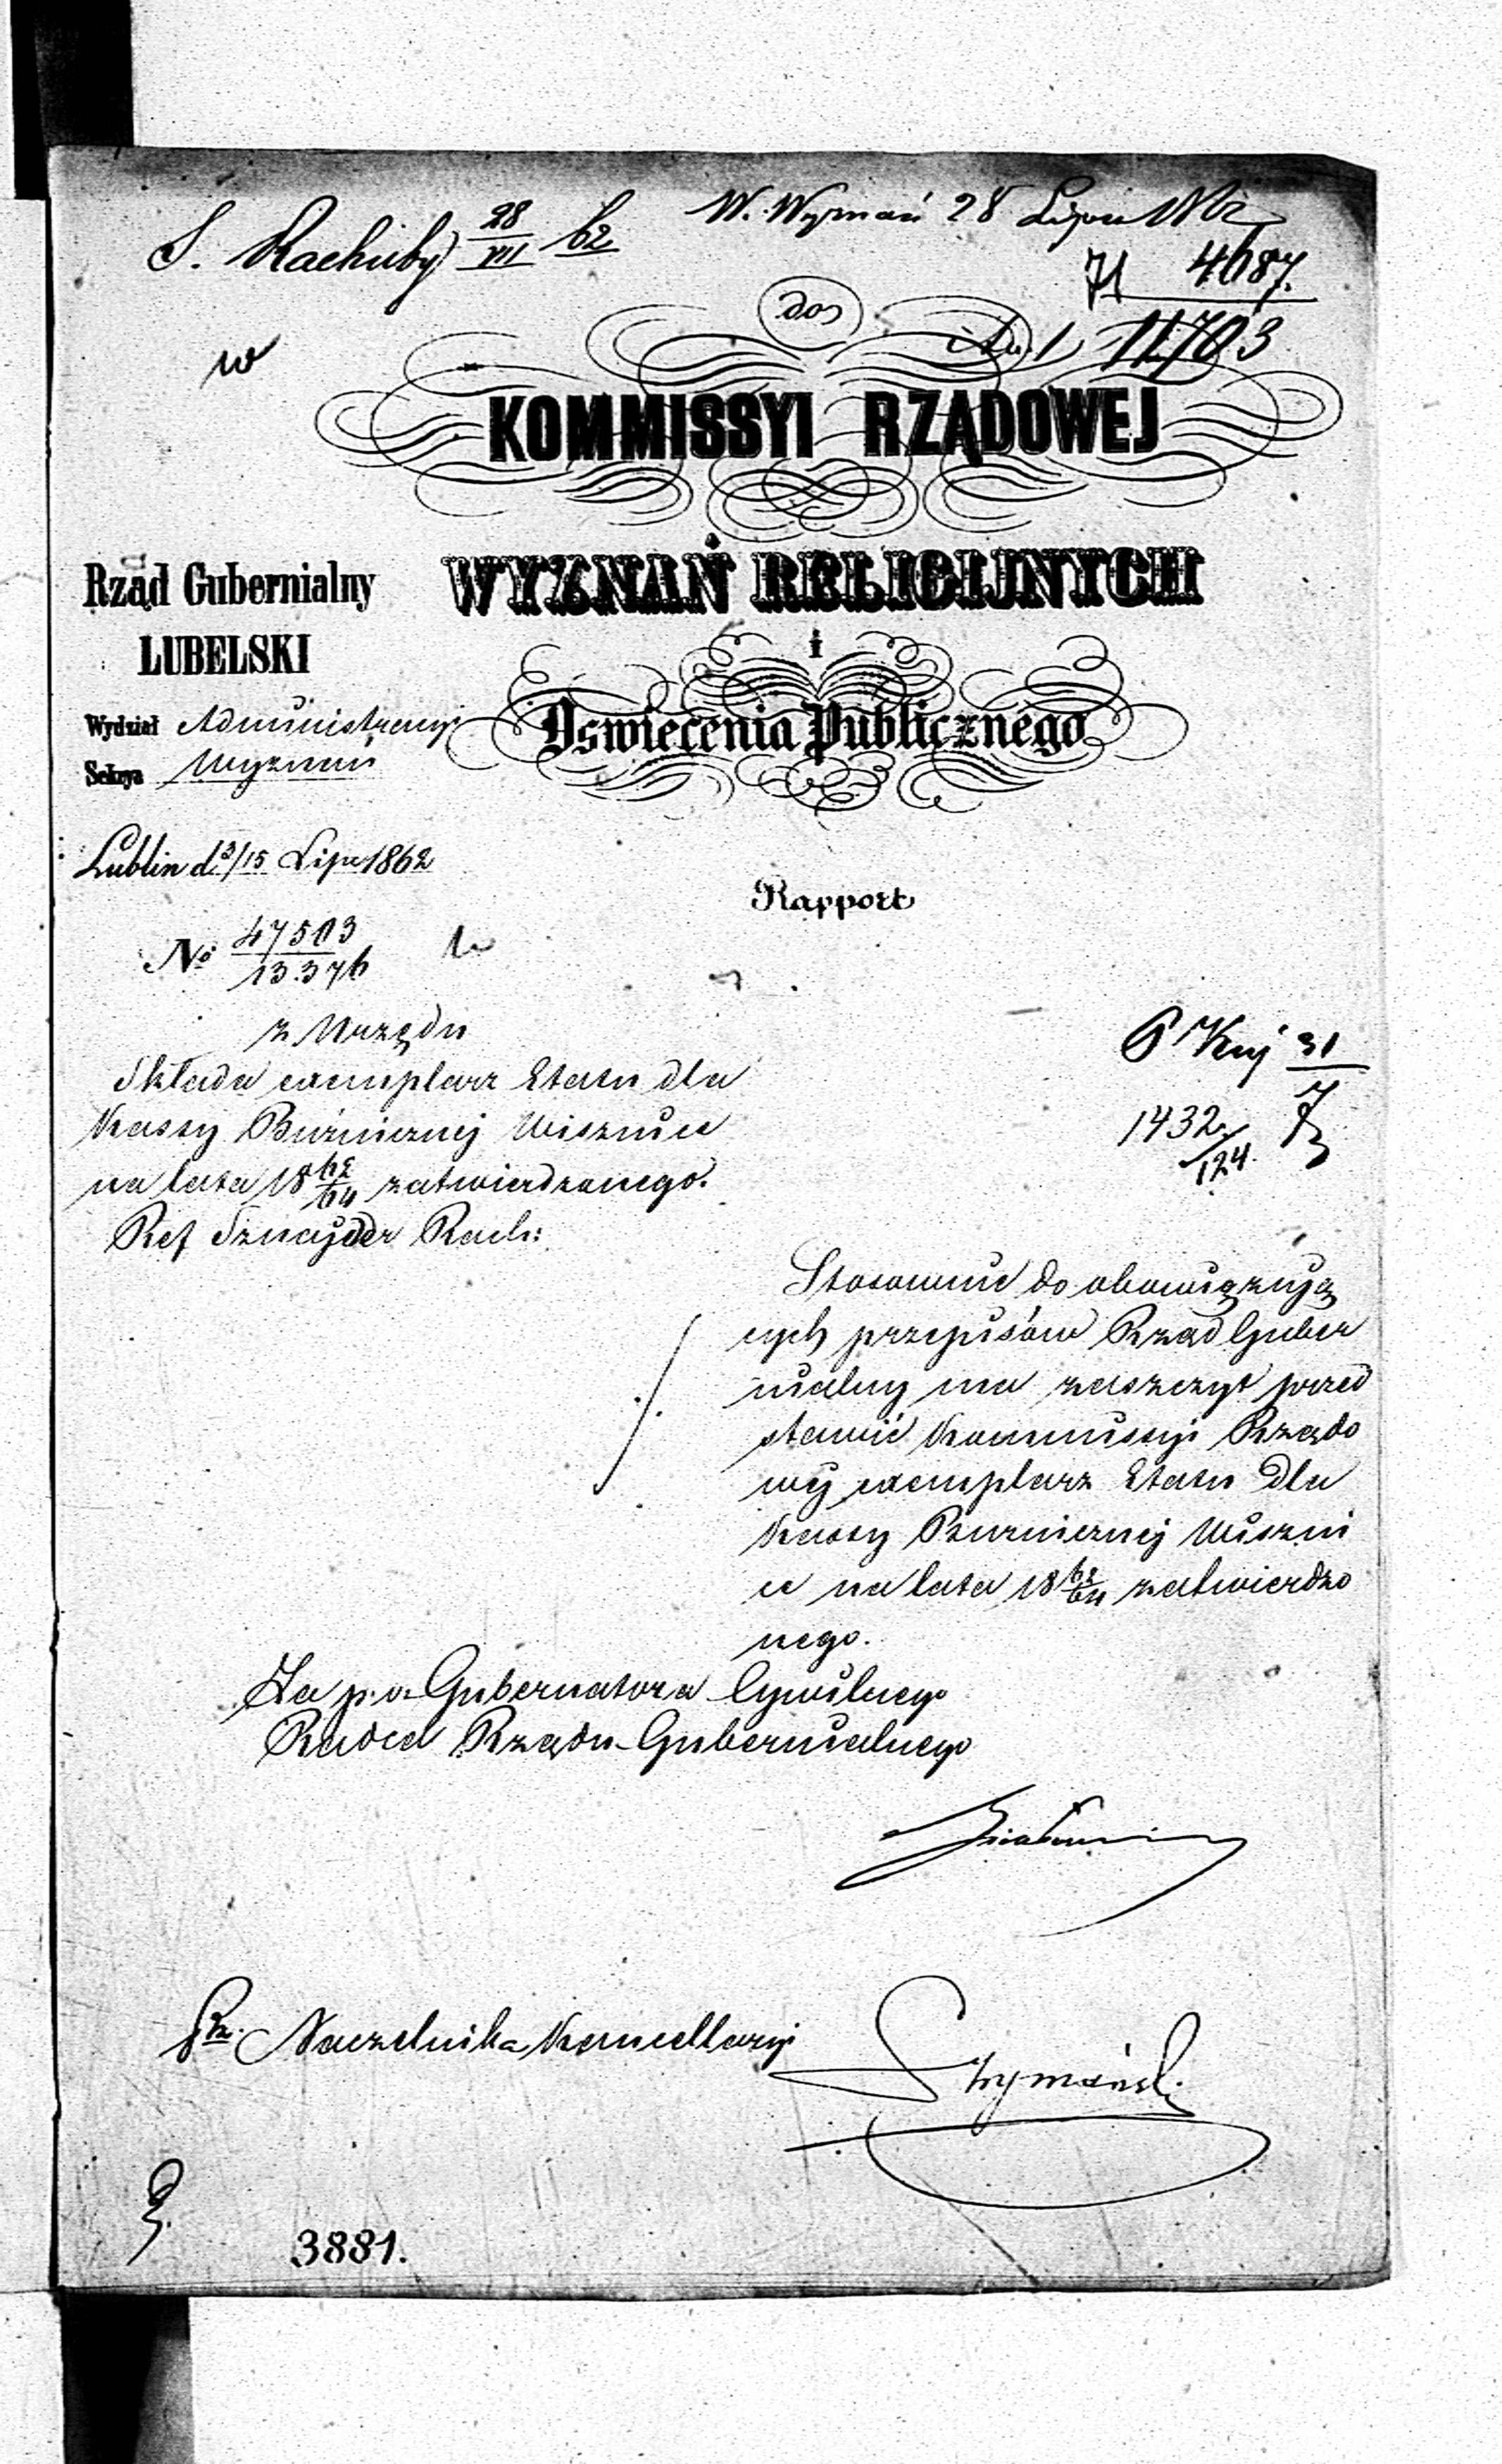 S. Rachuby 28/VII 62
W. Wyznań 28 Lipca 1862
4687.
11703
w
do
KOMMISSYI RZĄDOWEJ
WYZNAŃ RELIGIJNYCH
i
Oświecenia Publicznego
Rząd Gubernialny
LUBELSKI
Wydział Administracyj
Sekcya Wyznań
Lublin d. 3/15 Lipc 1862
Rapport
No 47503/13.376
z Urzędu
Składa exemplarz Etatu dla
Kassy Bużniczney Wisznice
na lata 18 62/64 zatwierdzonego.
Ref Sznayder Rach:
31/7
1432/124.
Stosownie do obowiązują
cych przepisów Rząd Guber
nialny ma zaszczyt przed
stawić Kommissyi Rządo
wej exemplarz Etatu dla
Kassy Bużniczney Wiszni
ce na lata 18 62/64 zatwierdzo
nego.
Za p.o. Gubernatora Cywilnego
Radca Rządu Gubernialnego
Naczelnika Kancellaryi
Szymański
3881.